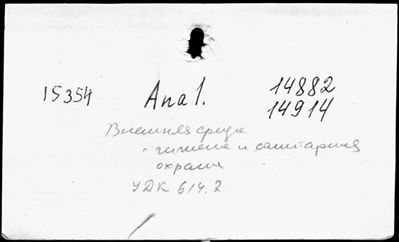 15354 Anal. 14882
14914
Внешняя среда
- гигиена и санитарная
охрана
УДК 614.7